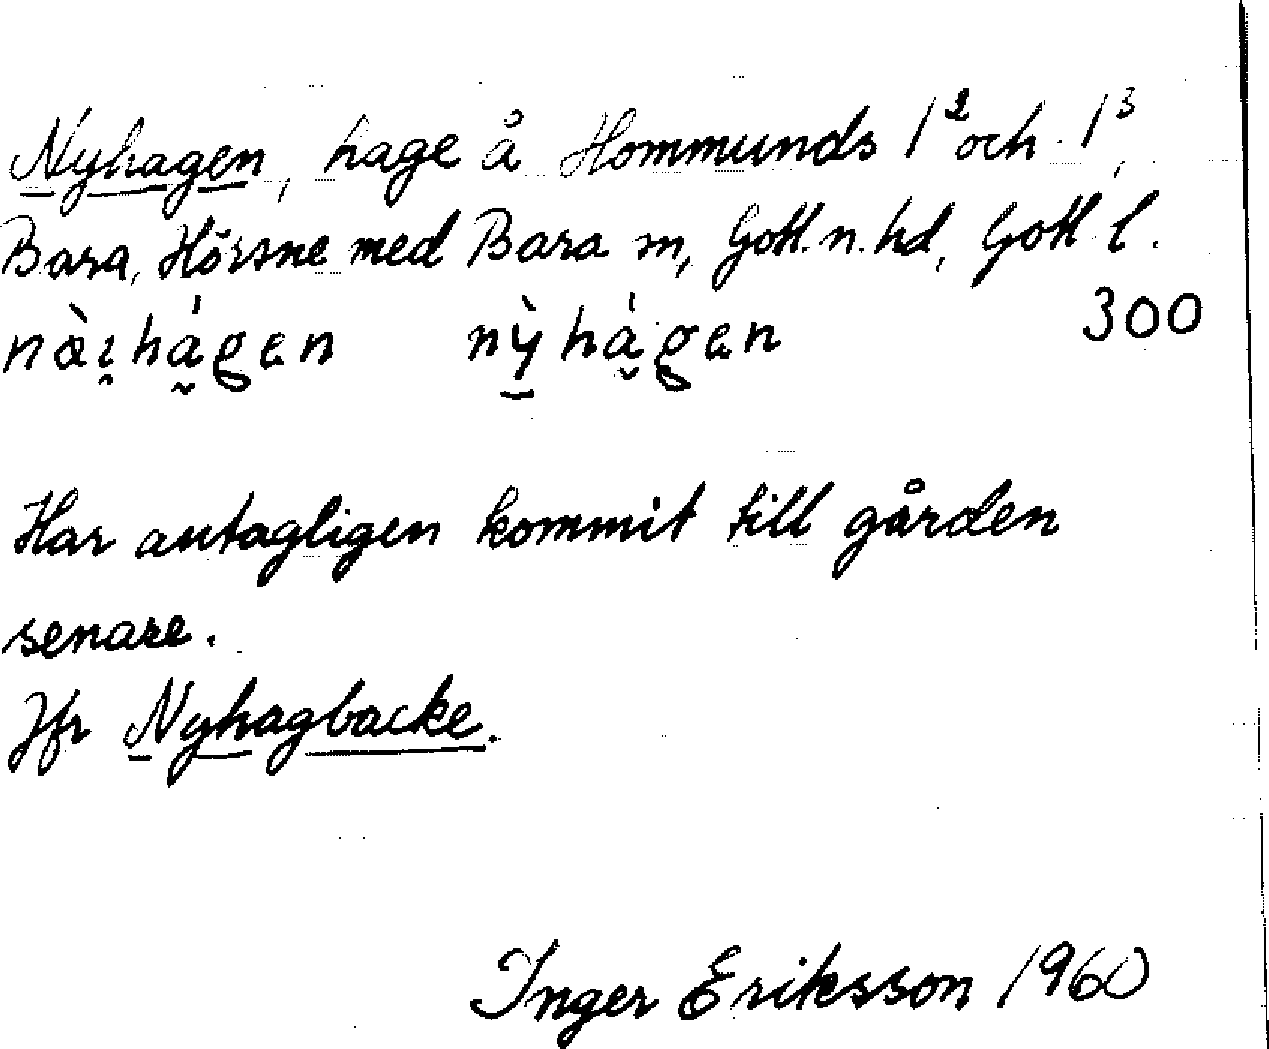 Nyhagen, hage å Hommunds 1² och 1³,
Bara, Hörsne med Bara sn, Gotl. n. hd, Gotl l.
300
Har antagligen kommit till gården
senare.
Jfr Nyhagbacke.
Inger Eriksson 1960